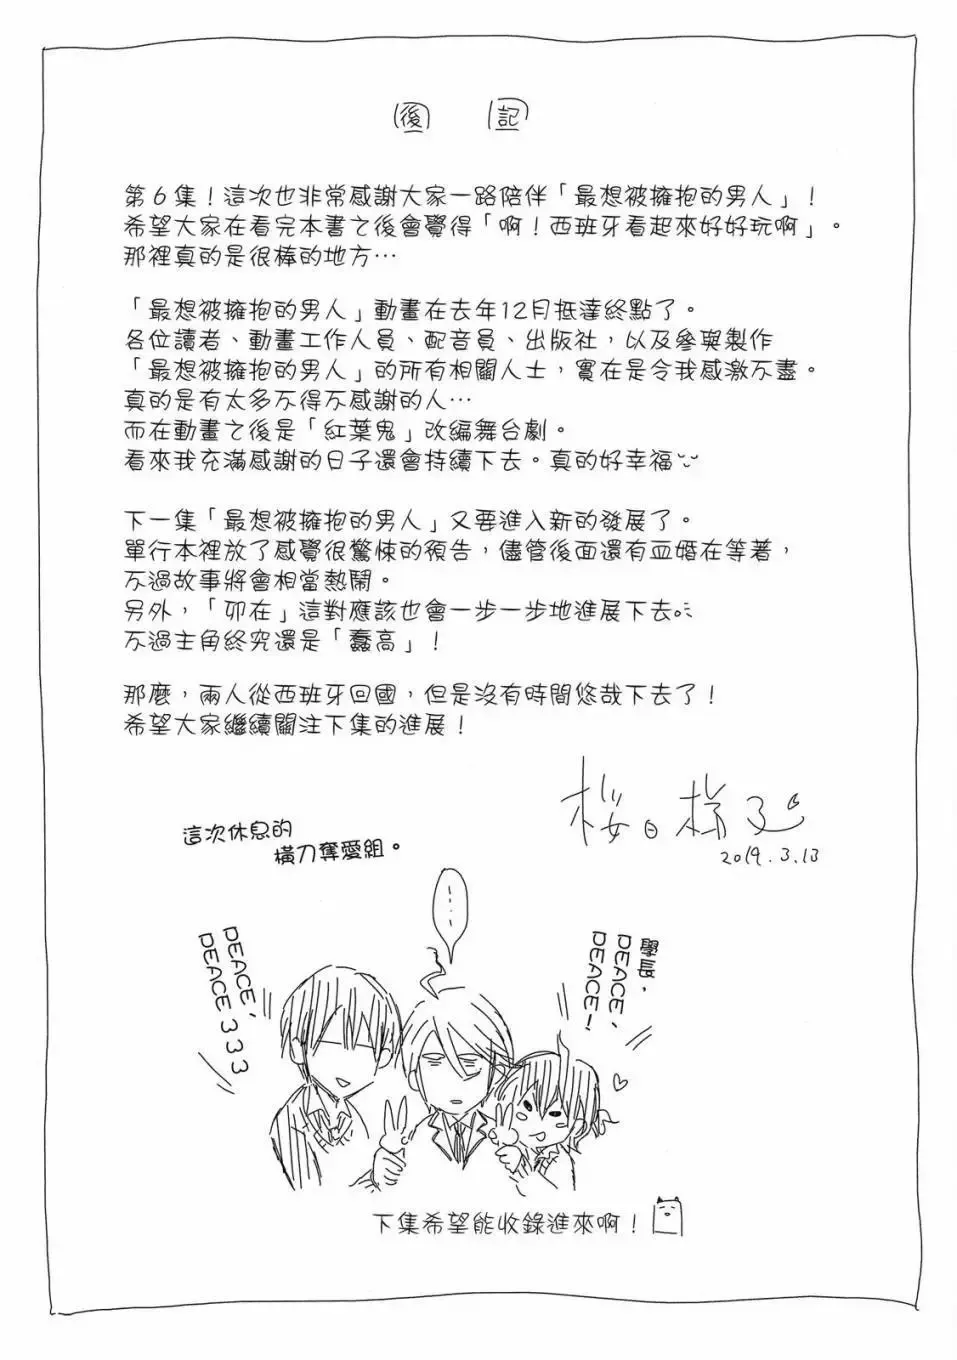 後記
第6集！這次也非常感謝大家一路陪伴「最想被擁抱的男人」！
希望大家在看完本書之後會覺得「啊！西班牙看起來好好玩啊」。
那裡真的是很棒的地方…
「最想被擁抱的男人」動畫在去年12月抵達終點了。
各位讀者、動畫工作人員、配音員、出版社，以及參與製作
「最想被擁抱的男人」的所有相關人士，實在是令我感激不盡。
真的是有太多不得不感謝的人…
而在動畫之後是「紅葉鬼」改編舞台劇。
看來我充滿感謝的日子還會持續下去。真的好幸福
下一集「最想被擁抱的男人」又要進入新的發展了。
單行本裡放了感覺很驚悚的預告，儘管後面還有血婚在等著，
不過故事將會相當熱鬧。
另外，「卯在」這對應該也會一步一步地進展下去
不過主角終究還是「蠢高」！
那麼，兩人從西班牙回國，但是沒有時間悠哉下去了！
希望大家繼續關注下集的進展！
桜日梯子
2019.3.13
這次休息的
橫刀奪愛組。
PEACE，
PEACE 333
……
學長，
PEACE，
PEACE！
下集希望能收錄進來啊！